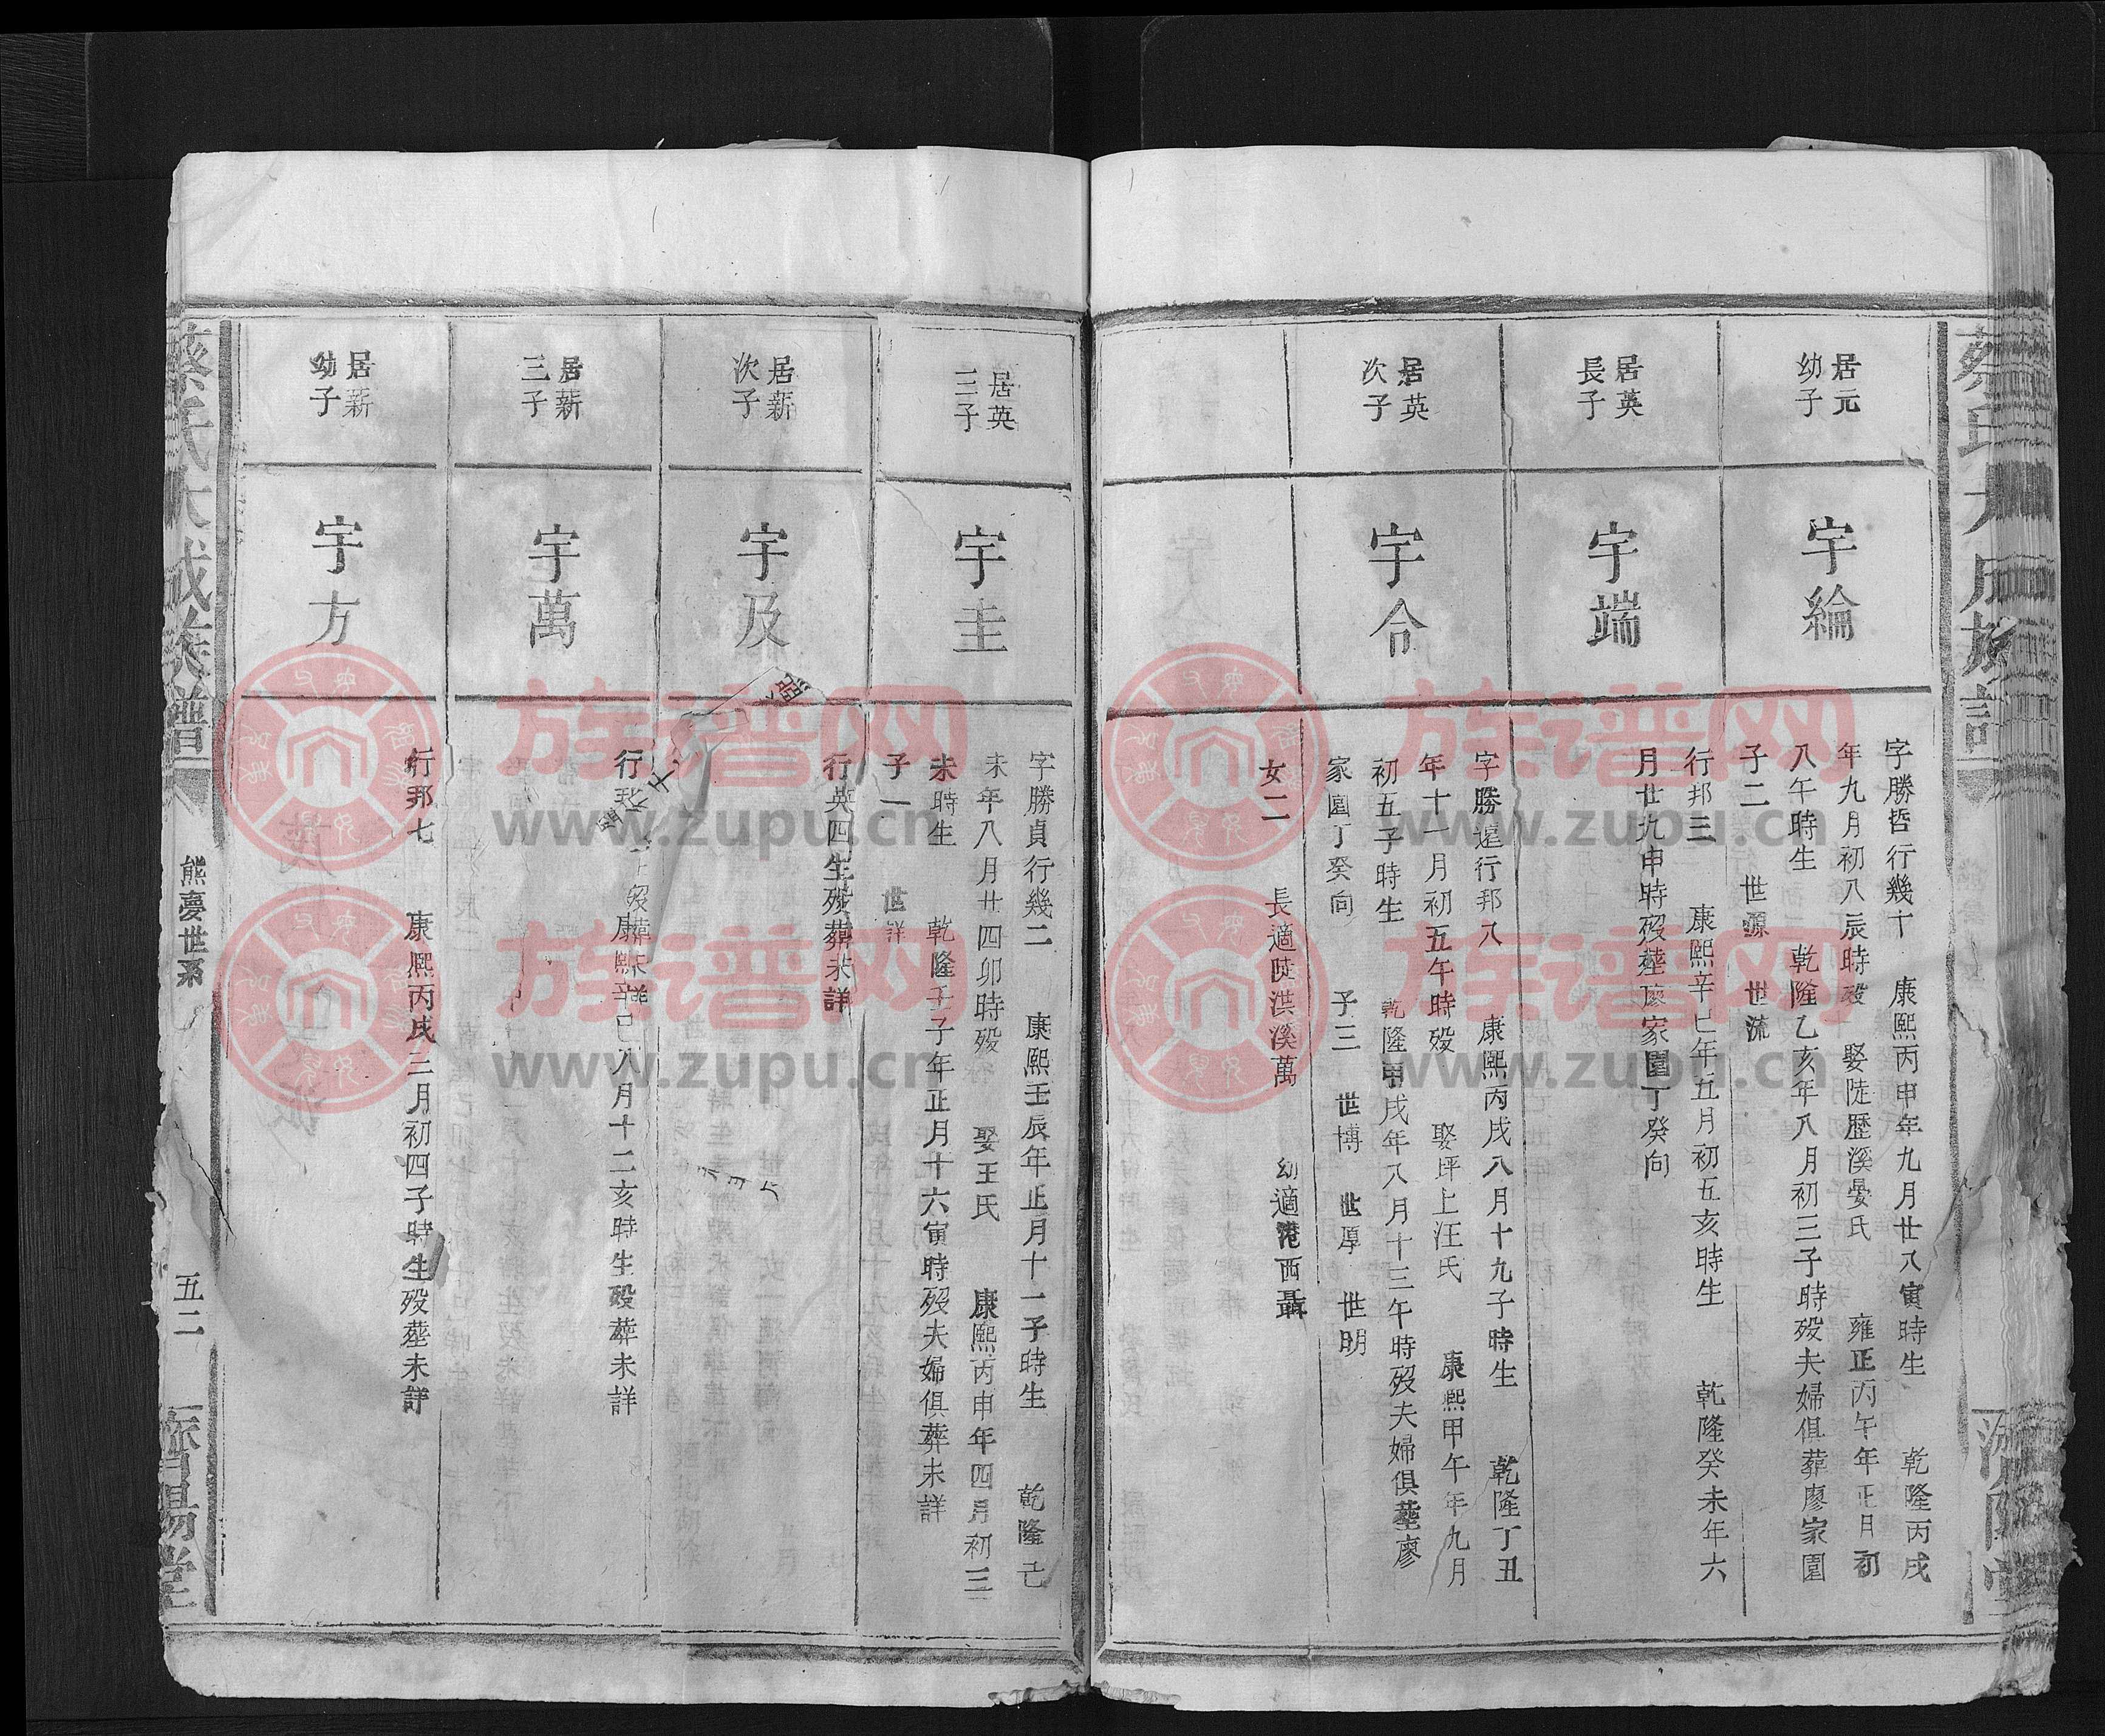 居元
幼子
宇綸
字勝哲行幾十 康熙丙申年九月廿八寅時生 乾隆丙戌
年九月初八辰時歿 娶陡歷溪晏氏 雍正丙午年正月初
八午時生 乾隆乙亥年八月初三子時歿夫婦俱葬廖家園
子二 世源 世流
居英
長子
宇端
行邦三 康熙辛巳年五月初五亥時生 乾隆癸未年六
月廿九申時歿塟廖家園丁癸向
居英
次子
宇令
字勝遠行邦八 康熙丙戌八月十九子時生 乾隆丁丑
年十一月初五午時歿 娶坪上汪氏 康熙甲午年九月
初五子時生 乾隆甲戌年八月十三午時歿夫婦俱塟廖
家園丁癸向 子三 世博 世厚 世明
女二 長適陡洪溪萬 幼適港西聶
居英
三子
宇圭
字勝貞行幾二 康熙壬辰年正月十一子時生 乾隆己
未年八月廿四卯時歿 娶王氏 康熙丙申年四月初三
未時生 乾隆壬子年正月十六寅時歿夫婦俱葬未詳
子一 世詳
居薪
次子
宇及
行英四生歿葬未詳
居薪
三子
宇萬
行邦 康熙辛巳八月十二亥時生歿葬未詳
居薪
幼子
宇方
行邦七 康熈丙戌三月初四子時生歿塟未詳
蔡氏大成族譜
熊夢世系
五二
濟陽堂
族谱网
www.zupu.cn
族谱网
www.zupu.cn
族谱网
www.zupu.cn
族谱网
www.zupu.cn